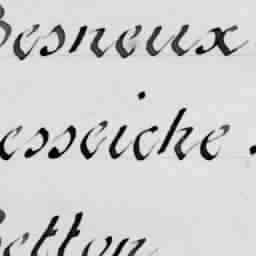 Besneux
esseiche.
Betton